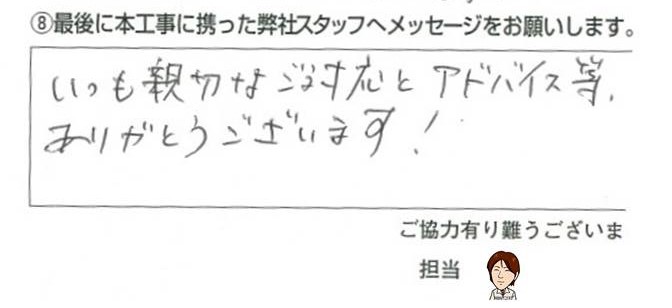 ⑧最後に本工事に携った弊社スタッフへメッセージをお願いします。
いつも親切なご対応とアドバイス等、
ありがとうございます!
ご協力有り難うございま
担当